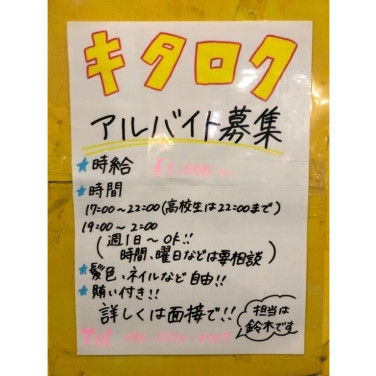 キタロク
アルバイト募集
★時給 ¥1,000〜
★時間
17:00〜22:00(高校生は22:00まで)
19:00〜2:00
(週1日〜OK!!
時間、曜日などは要相談)
★髪色、ネイルなど自由!!
★賄い付き!!
詳しくは面接で!!
担当は
鈴木です
Tel